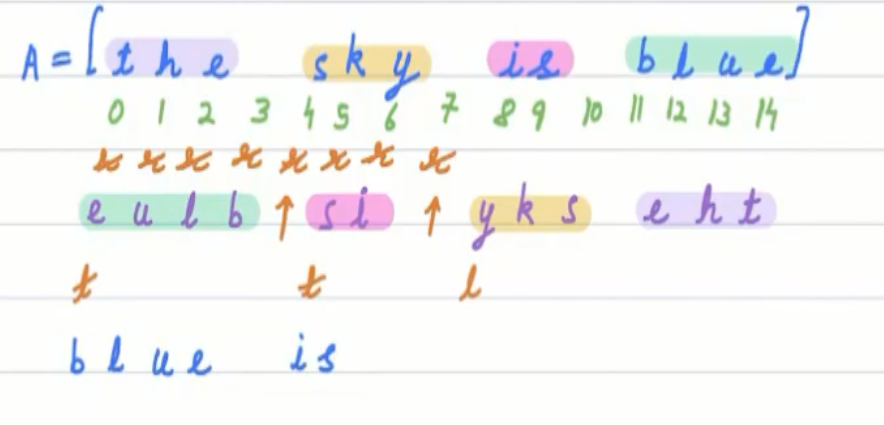 A = [ the sky is blue ]
0 1 2 3 4 5 6 7 8 9 10 11 12 13 14
eulb ↑ si ↑ yks eht
l l l
blue is